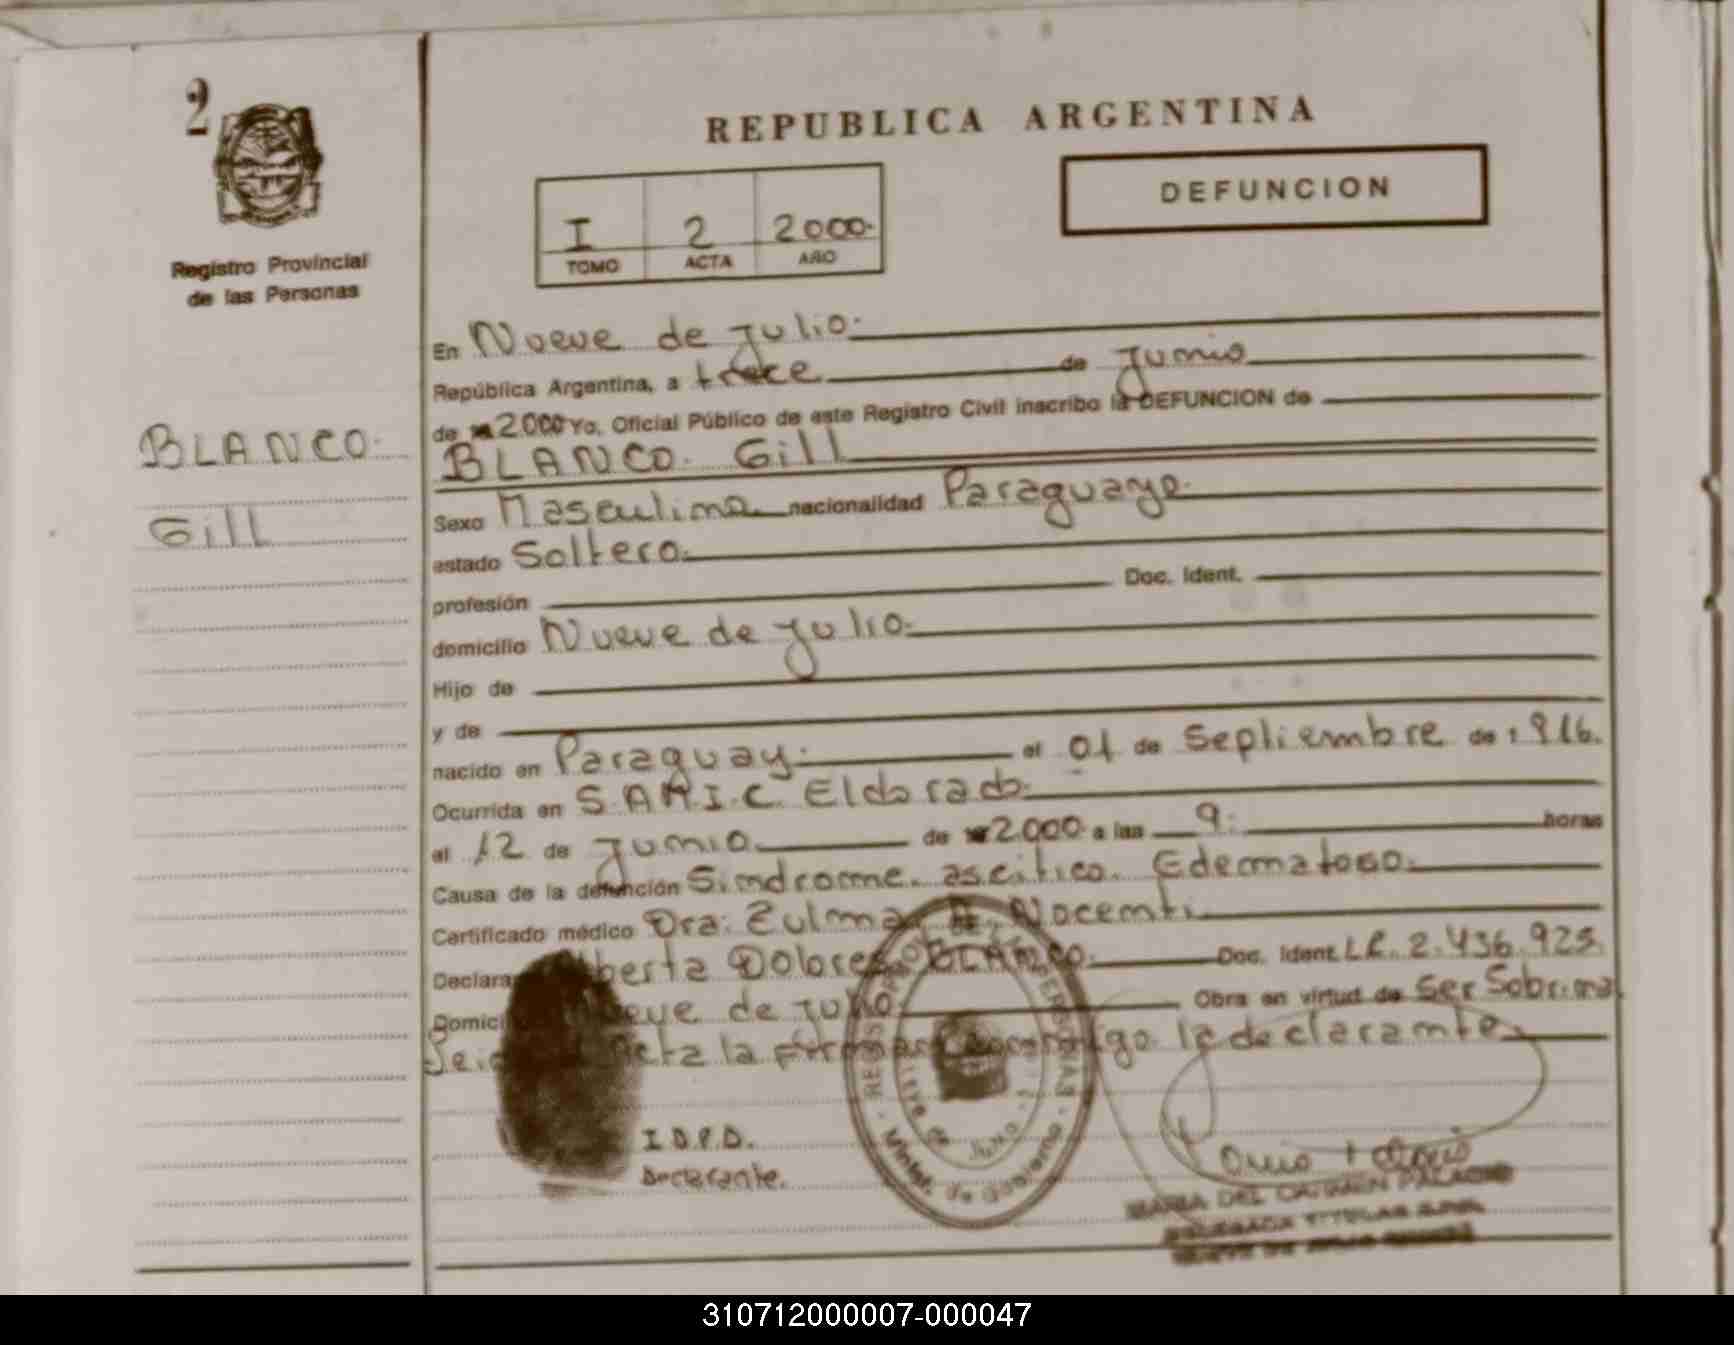 2
REPUBLICA ARGENTINA
I 2 2000.
TOMO ACTA AÑO
DEFUNCION
Registro Provincial
de las Personas
BLANCO.
Gill
En Nueve de Julio.
República Argentina, a trece de Junio
de 2.000 Yo, Oficial Público de este Registro Civil inscribo la DEFUNCION de
BLANCO. Gill
Sexo Masculino nacionalidad Paraguayo.
estado Soltero.
profesión Doc. Ident.
domicilio Nueve de Julio.
Hijo de
y de
nacido en Paraguay. el 01 de Septiembre de 1916.
Ocurrida en S.A.M.I.C. Eldorado.
el 12 de Junio de 2.000 a las 9. horas
Causa de la defunción Sindrome. ascitico. Edematoso.
Certificado médico Dra: Zulma A. Nocenti
Declara Dolores BLANCO. Doc. Ident. LC. 2.436.925.
Nueve de Julio Obra en virtud de Ser Sobrina
Acta la firma conmigo la declarante
I.D.P.D.
Declarante.
MARIA DEL CARMEN PALACIO
DELEGADA TITULAR
NUEVE DE JULIO
310712000007-000047